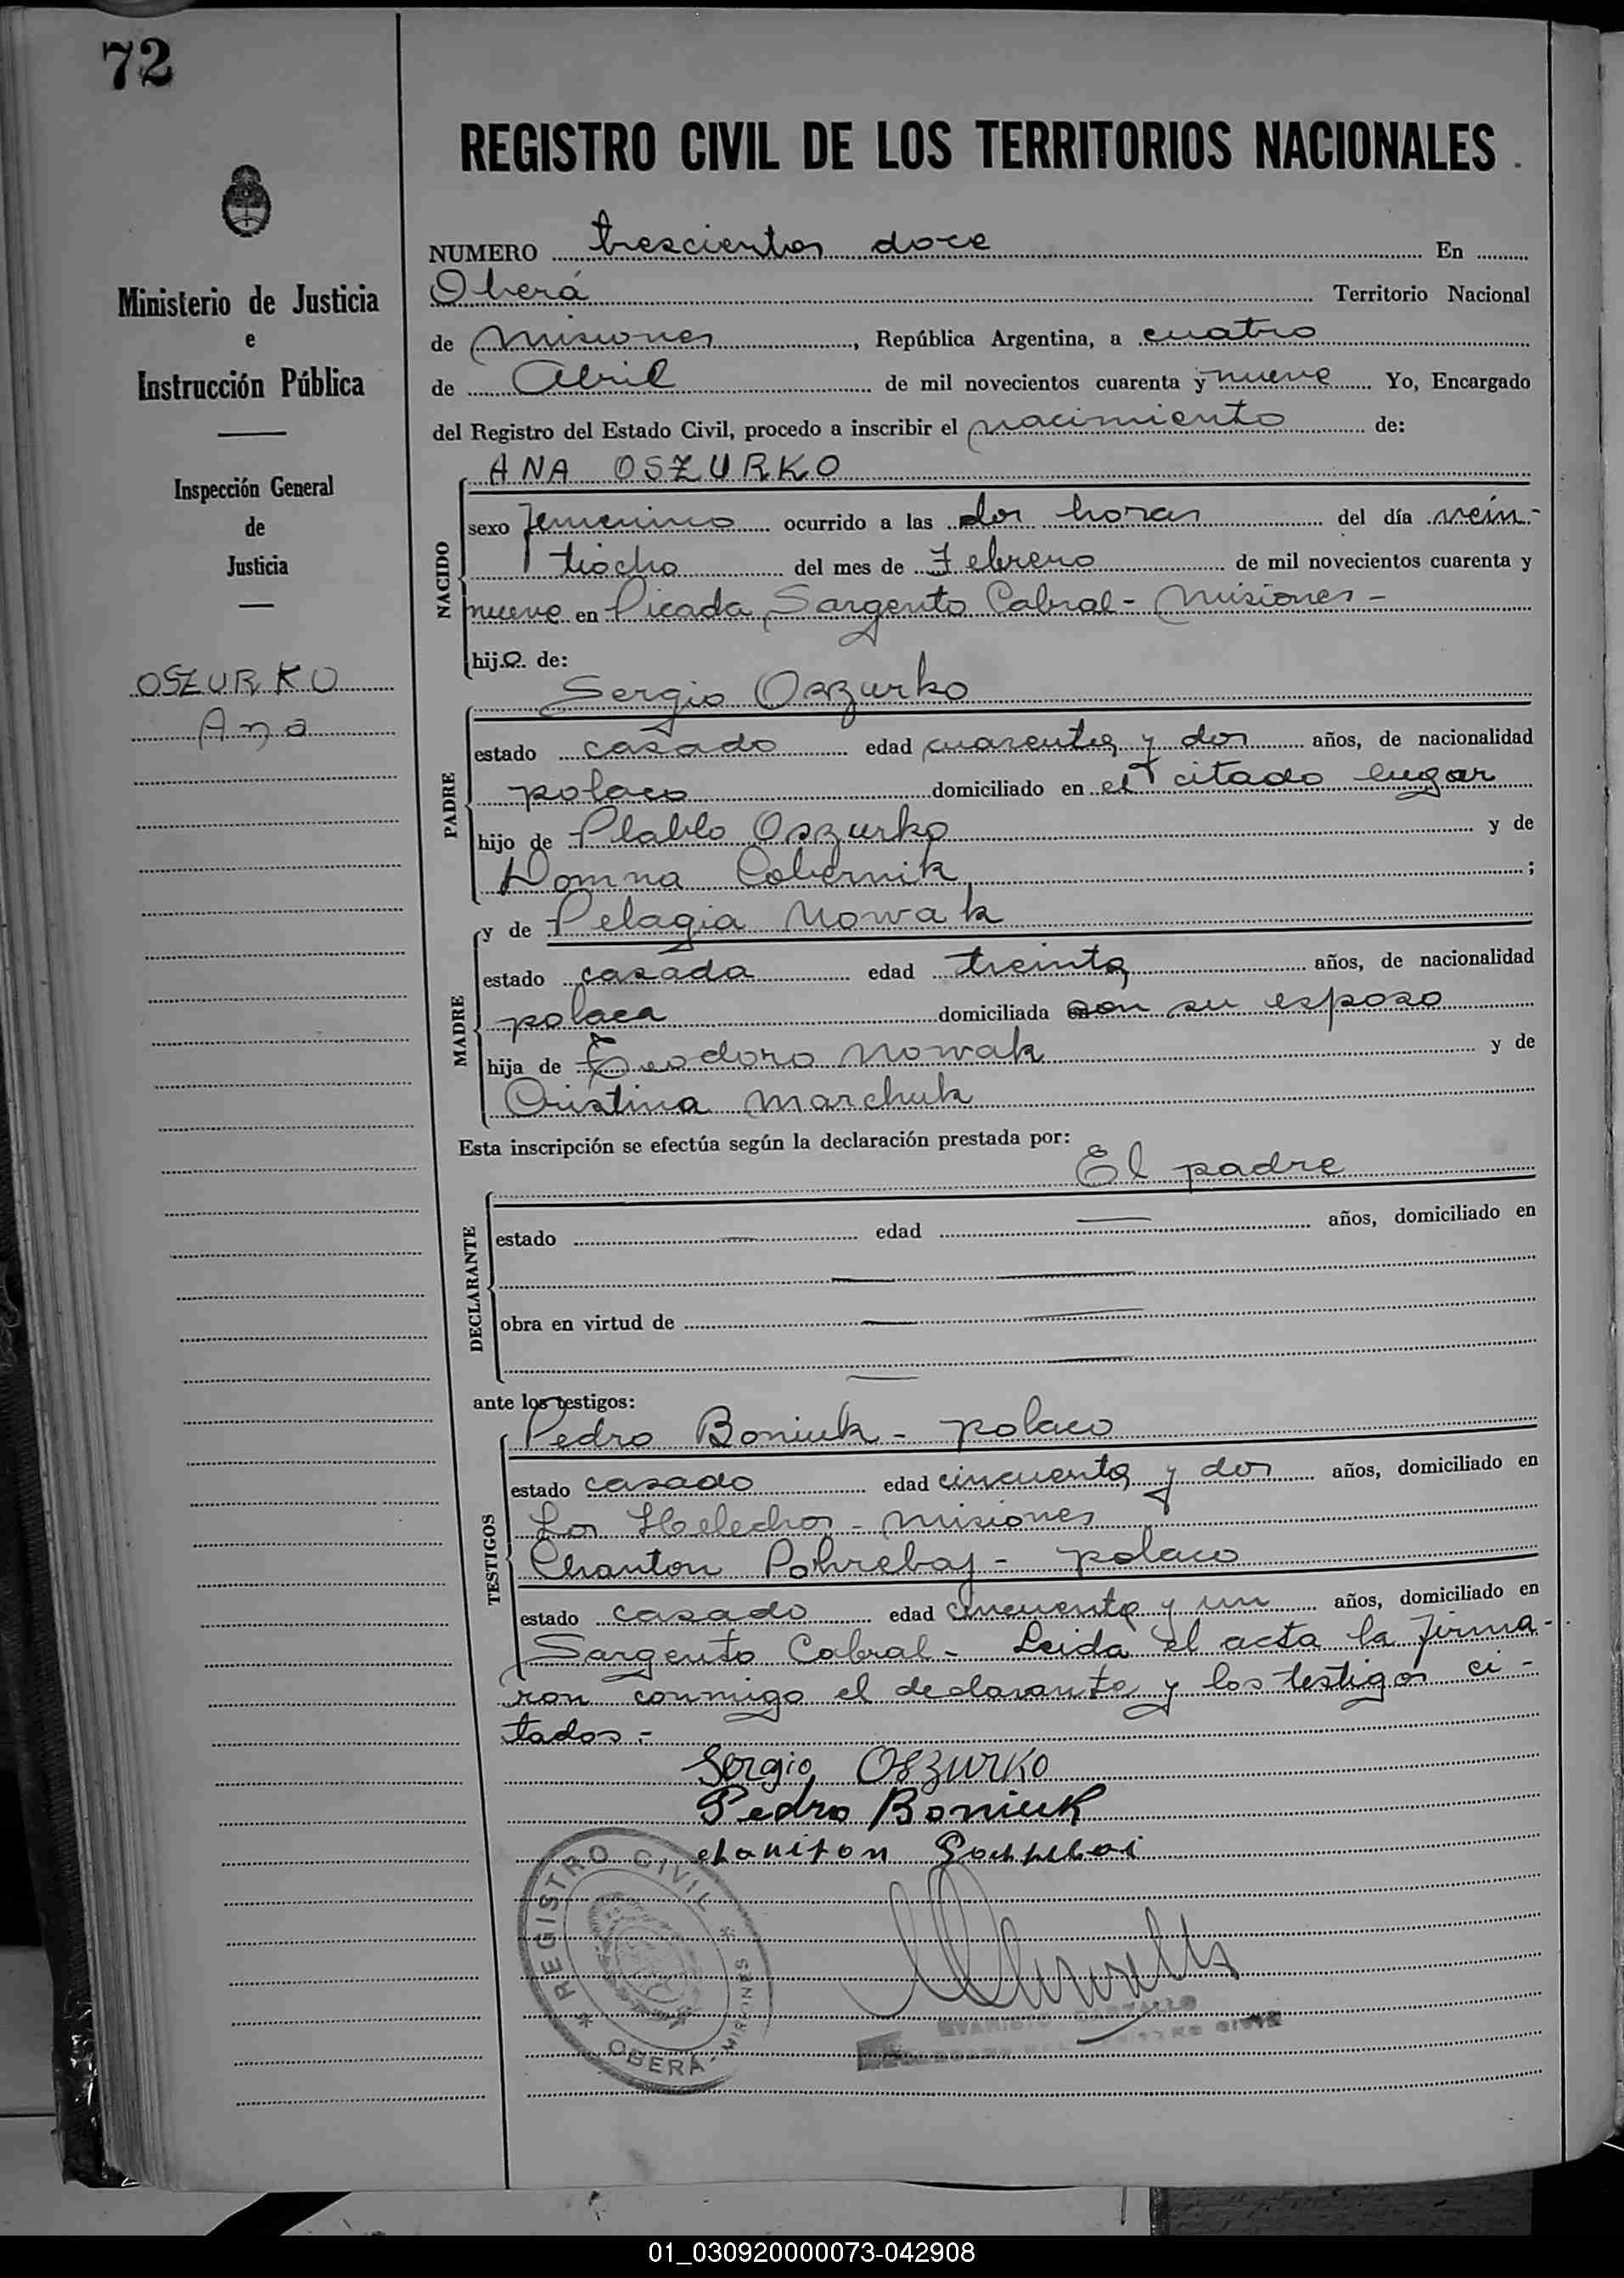 72
REGISTRO CIVIL DE LOS TERRITORIOS NACIONALES.
Ministerio de Justicia
e
Instrucción Pública
Inspección General
de
Justicia
OSZURKO
Ana
NUMERO trescientos doce En
Oberá Territorio Nacional
de Misiones, República Argentina, a cuatro
de Abril de mil novecientos cuarenta y nueve Yo, Encargado
del Registro del Estado Civil, procedo a inscribir el nacimiento de:
ANA OSZURKO
NACIDO
sexo femenino ocurrido a las dos horas del día vein-
tiocho del mes de Febrero de mil novecientos cuarenta y
nueve en Picada Sargento Cabral - Misiones -
hija de:
Sergio Oszurko
PADRE
estado casado edad cuarenta y dos años, de nacionalidad
polaco domiciliado en el citado lugar
hijo de Plablo Oszurko y de
Domna Cobernik;
y de Pelagia Nowak
MADRE
estado casada edad treinta años, de nacionalidad
polaca domiciliada con su esposo
hija de Teodoro Nowak y de
Cristina Marchuk
Esta inscripción se efectúa según la declaración prestada por:
El padre
DECLARANTE
estado edad años, domiciliado en
obra en virtud de
ante los testigos:
Pedro Boniuk - polaco
TESTIGOS
estado casado edad cincuenta y dos años, domiciliado en
Los Helechos - Misiones
Chanton Pohrebaj - polaco
estado casado edad cincuenta y un años, domiciliado en
Sargento Cabral - Leida el acta la firma-
ron conmigo el declarante y los testigos ci-
tados.-
Sergio Oszurko
Pedro Boniuk
REGISTRO CIVIL
OBERÁ - MISIONES
01_030920000073-042908